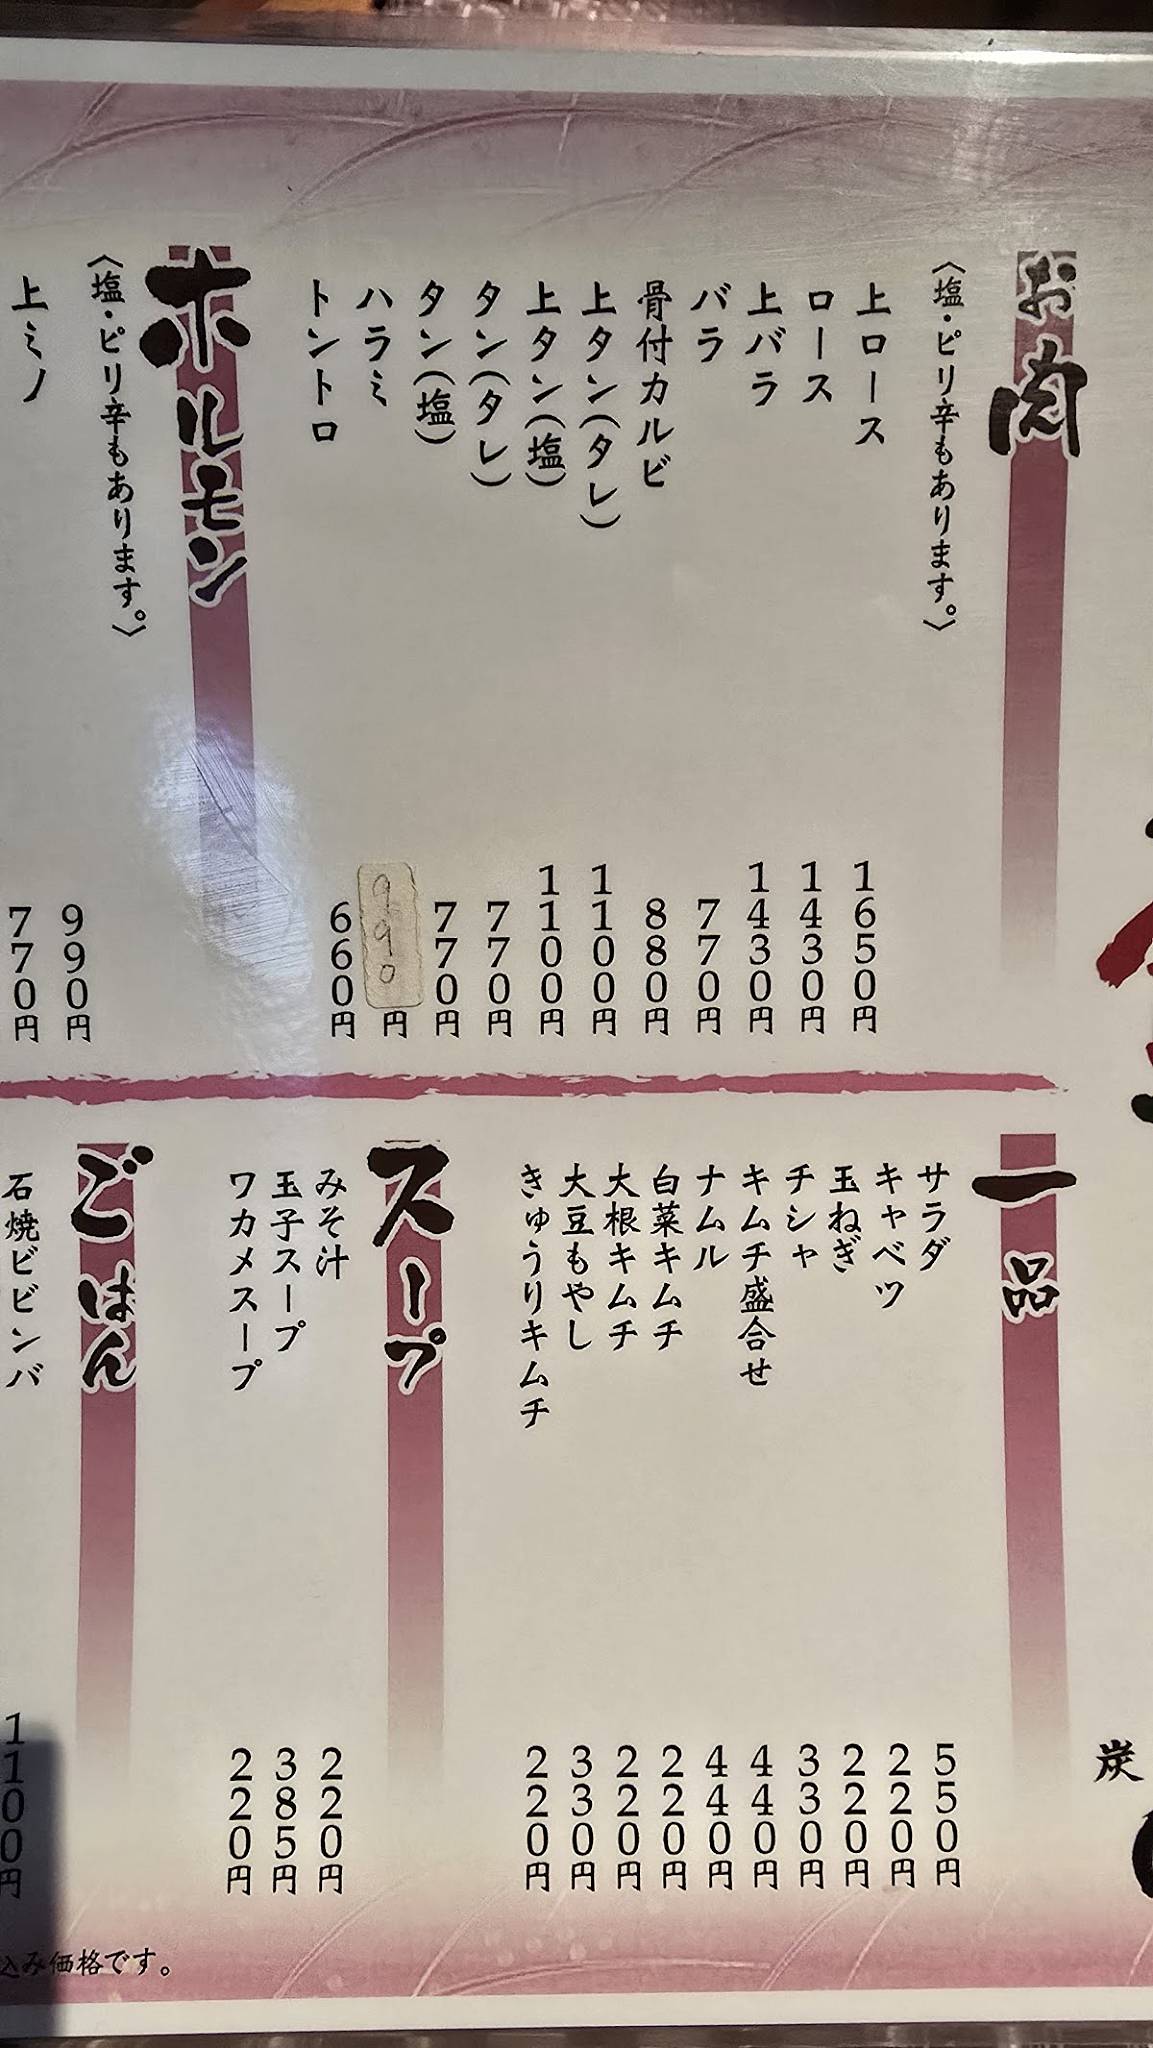 お肉
〈塩・ピリ辛もあります。〉
上ロース 1650円
ロース 1430円
上バラ 1430円
バラ 770円
骨付カルビ 880円
上タン(タレ) 1100円
上タン(塩) 1100円
タン(タレ) 770円
タン(塩) 770円
ハラミ 990円
トントロ 660円
ホルモン
〈塩・ピリ辛もあります。〉
上ミノ 990円
770円
一品
サラダ 550円
キャベツ 220円
玉ねぎ 220円
チシャ 330円
キムチ盛合せ 440円
ナムル 440円
白菜キムチ 220円
大根キムチ 220円
大豆もやし 330円
きゅうりキムチ 220円
スープ
みそ汁 220円
玉子スープ 385円
ワカメスープ 220円
ごはん
石焼ビビンバ 1100円
込み価格です。
炭